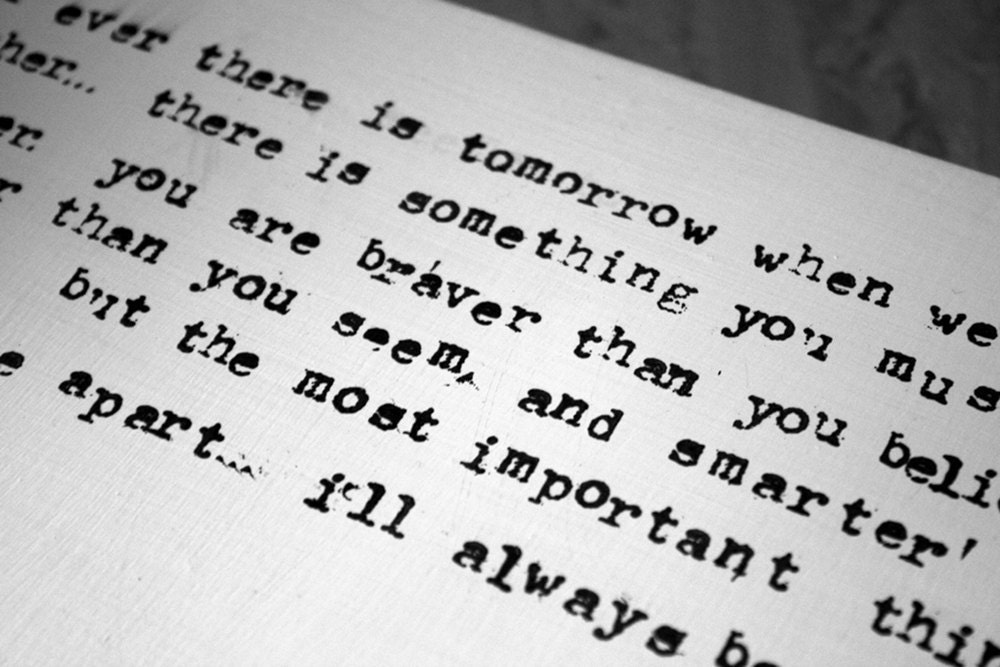 ever there is tomorrow when we
her... there is something you mus
er. you are braver than you beli
r than you seem, and smarter'
but the most important thin
e apart... i'll always be